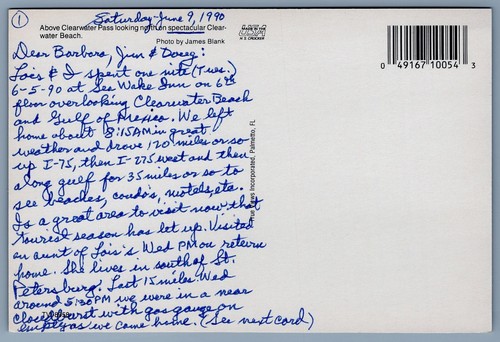 ① Saturday-June 9, 1990
Above Clearwater Pass looking north on spectacular Clearwater Beach.
Photo by James Blank
MADE IN USA
H S CROCKER
0 49167 10054 3
Dear Barbara, Jim & Doug:
Lois & I spent one nite (Tues.)
6-5-90 at Sea Wake Inn on 6th
floor overlooking Clearwater Beach
and Gulf of Mexico. We left
home about 8:15AM in great
weather and drove 120 miles or so
up I-75, then I-275 west and then
along gulf for 35 miles or so to
see beaches, condo's, motels, etc.
Is a great area to visit now that
tourist season has let up. Visited
an aunt of Lois's Wed PM on return
home. She lives in south of St.
Petersburg. Last 15 miles Wed
around 5:30PM we were in a near
cloudburst with gas gauge on
empty as we came home. (See next card)
Incorporated, Palmetto, FL